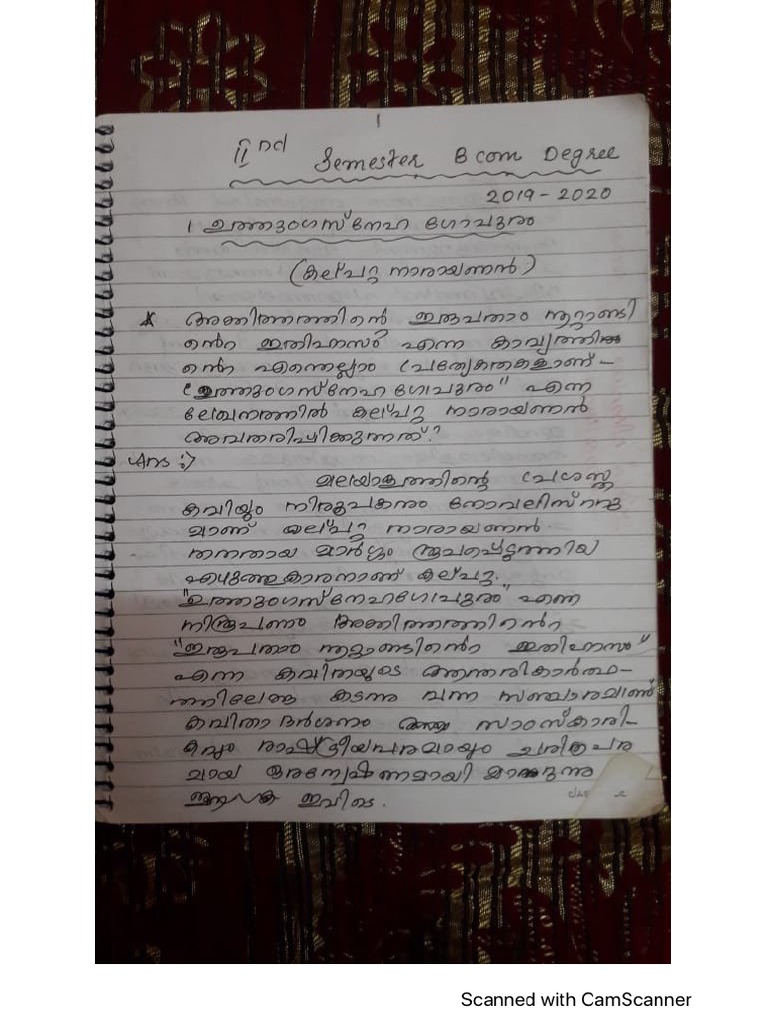 1
IInd Semester B com Degree
2019-2020
1 ഉത്തുംഗസ്നേഹ ഗോപുരം
(കല്പറ്റ നാരായണൻ)
* അക്കിത്തത്തിന്റെ ഇരുപതാം നൂറ്റാണ്ടി
ന്റെ ഇതിഹാസം എന്ന കാവ്യത്തി
ന്റെ എന്തെല്ലാം പ്രത്യേകതകളാണ്-
"ഉത്തുംഗസ്നേഹ ഗോപുരം" എന്ന
ലേഖനത്തിൽ കല്പറ്റ നാരായണൻ
അവതരിപ്പിക്കുന്നത്?
Ans :)
മലയാളത്തിന്റെ പ്രശസ്ത
കവിയും നിരൂപകനും നോവലിസ്റ്റു
മാണ് കല്പറ്റ നാരായണൻ.
തനതായ മാർഗ്ഗം രൂപപ്പെടുത്തിയ
എഴുത്തുകാരനാണ് കല്പറ്റ.
"ഉത്തുംഗസ്നേഹഗോപുരം" എന്ന
നിരൂപണം അക്കിത്തത്തിന്റെ
"ഇരുപതാം നൂറ്റാണ്ടിന്റെ ഇതിഹാസം"
എന്ന കവിതയുടെ ആന്തരികാർത്ഥ-
ത്തിലേക്കു കടന്നു വന്ന സഞ്ചാരമാണ്
കവിതാ ദർശനം സാംസ്കാരി-
കവും രാഷ്ട്രീയപരമായും ചരിത്രപര
മായ അന്വേഷണമായി മാറുന്നു
ഇവിടെ.
Scanned with CamScanner